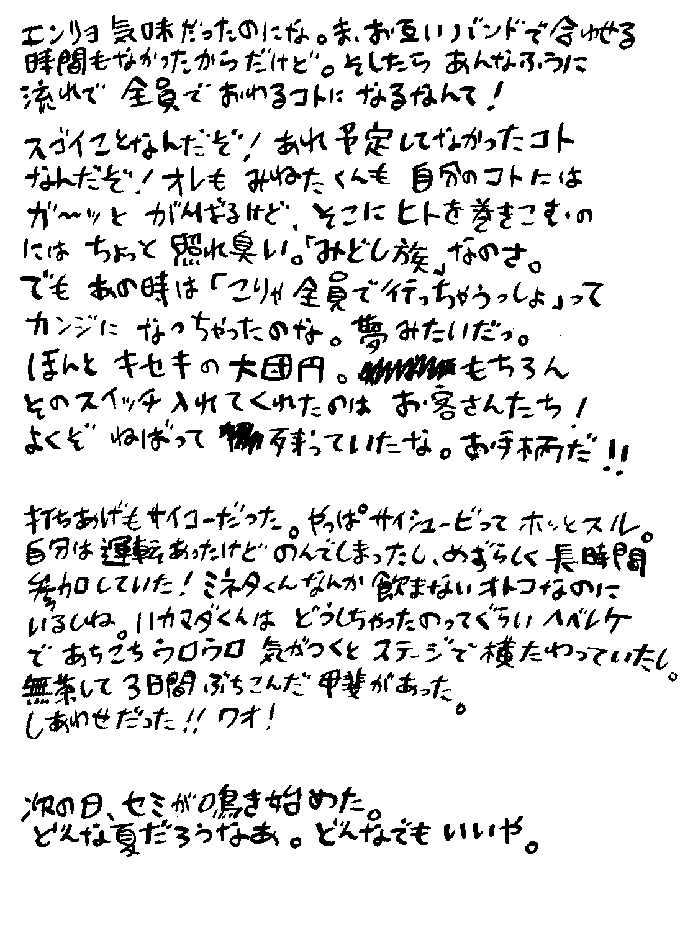 エンリョ気味だったのにな。ま、お互いバンドで合わせる
時間もなかったからだけど。そしたら あんなふうに
流れで 全員で おわるコトに なるなんて!
スゴイことなんだぞ! あれ 予定してなかったコト
なんだぞ! オレも みねたくんも 自分のコトには
ガ〜ッと がんばるけど、そこに ヒトを巻きこむの
には ちょっと 照れ臭い。「みどし族」なのさ。
でも あの時は「こりゃ全員で行っちゃうっしょ」って
カンジに なっちゃったのな。夢みたいだっ。
ほんと キセキの 大団円。もちろん
そのスイッチ入れてくれたのは お客さんたち!
よくぞ ねばって 残っていたな。お手柄だ!!
打ちあげもサイコーだった。やっぱサイシュービってホッとスル。
自分は運転あったけど のんでしまったし、めずらしく長時間
参加していた! ミネタくんなんか 飲まないオトコなのに
いるしね。ハカマダくんは どうしちゃったのってぐらいヘベレケ
で あちこちウロウロ 気がつくと ステージで横たわっていたし。
無茶して3日間ぶちこんだ 甲斐があった。
しあわせだった!! ワオ!
次の日、セミが鳴き始めた。
どんな夏だろうなあ。どんなでもいいや。